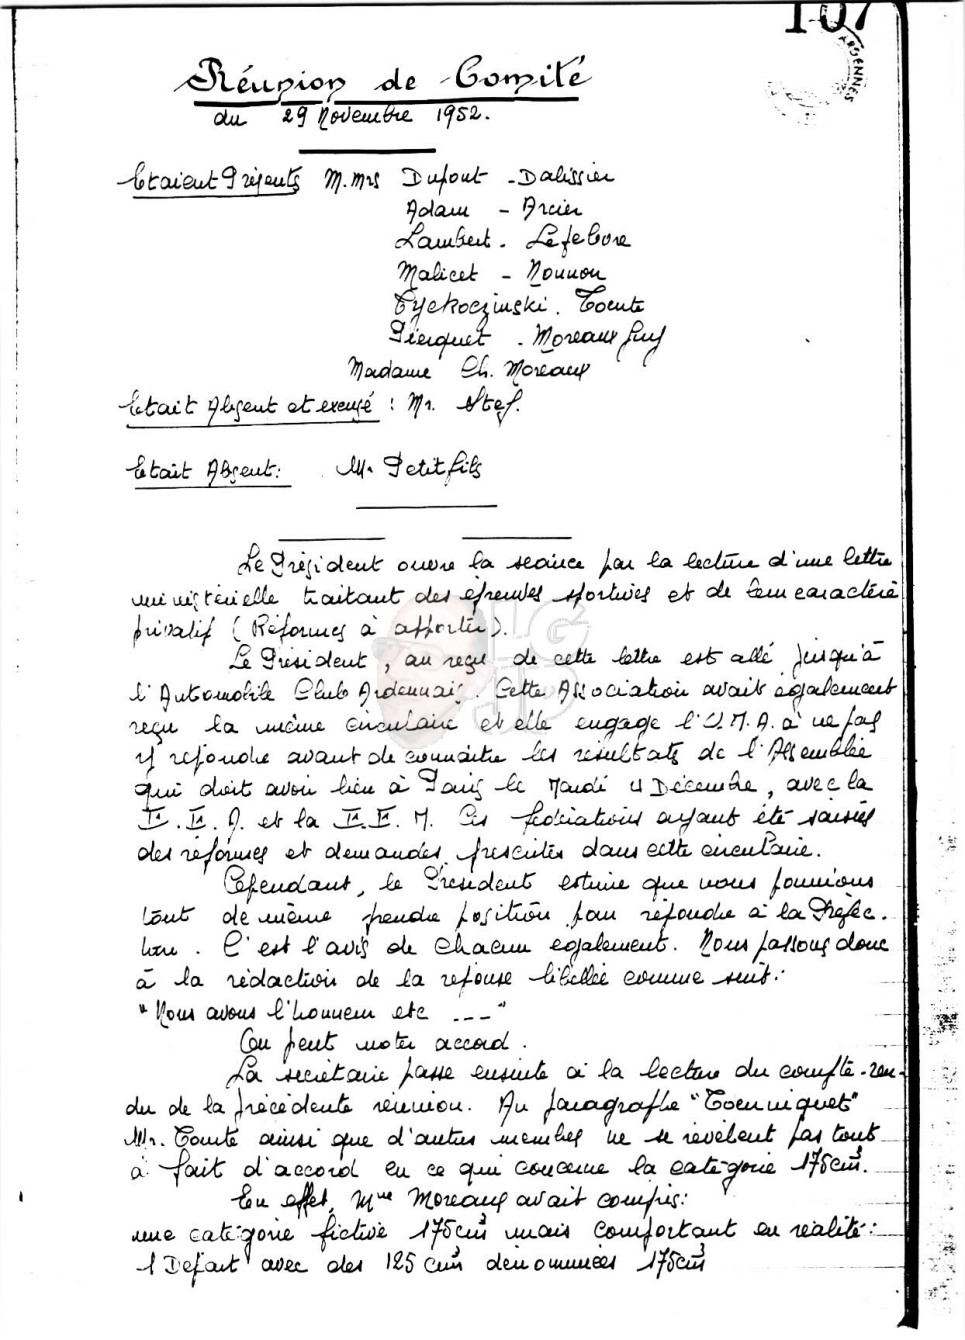 107
ARDENNES
Réunion de Comité
du 29 Novembre 1952.
Etaient Présents M.mrs Dupont - Dalissier
Adam - Arcier
Lambert - Lefebvre
Malicet - Nounon
Tyckoczinski . Toente
Pierquet . Moreaux Guy
Madame Ch. Moreaux
Etait Absent et excusé : Mr. Stef.
Etait Absent: Mr Petitfils
Le Président ouvre la séance par la lecture d'une lettre
ministérielle traitant des épreuves sportives et de leur caractère
privatif (Réformes à apporter).
Le Président, au reçu de cette lettre est allé jusqu'à
l'Automobile Club Ardennais. Cette Association avait également
reçu la même circulaire et elle engage l'U.M.A. à ne pas
y répondre avant de connaitre les résultats de l'Assemblée
qui doit avoir lieu à Paris le Mardi 4 Décembre, avec la
F.F.A. et la F.F.M. Ces fédérations ayant été saisies
des réformes et demandes prescrites dans cette circulaire.
Cependant, le Président estime que nous pourrions
tout de même prendre position pour répondre à la Préfec.
ture. C'est l'avis de chacun également. Nous passons donc
à la rédaction de la réponse libellée comme suit:
"Nous avons l'honneur etc ---"
On peut noter accord.
La secrétaire passe ensuite à la lecture du compte-ren-
du de la précédente réunion. Au paragraphe "Tourniquets"
Mr. Toente ainsi que d'autres membres ne se révèlent pas tout
à fait d'accord en ce qui concerne la catégorie 175cm3.
En effet, Mme Moreaux avait compris:
une catégorie fictive 175cm3 mais comportant en réalité:
1 Départ avec des 125 cm3 dénommées 175cm3